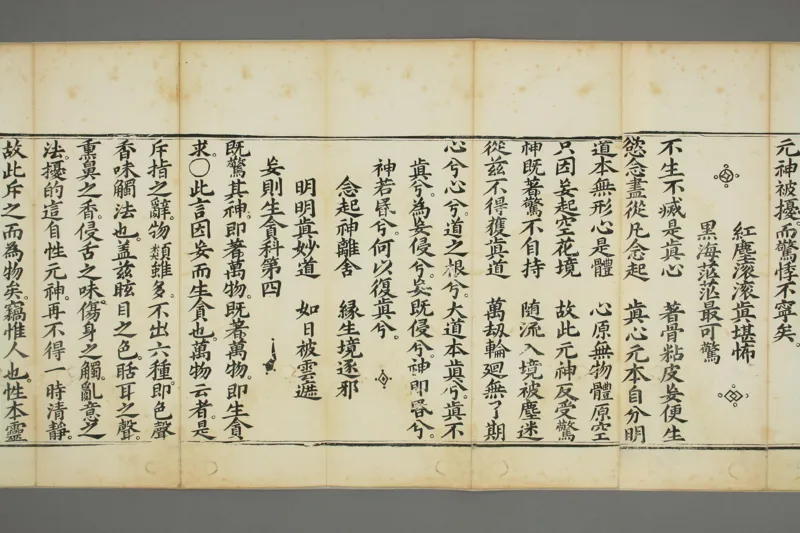 元神被擾。而驚悸不寧矣。
紅塵滾滾真堪怖
黑海茫茫最可驚
不生不滅是真心　著骨粘皮妄便生
慾念盡從凡念起　真心元本自分明
道本無形心是體　心原無物體原空
只因妄起空花境　故此元神反受驚
神既著驚不自持　隨流入境被塵迷
從茲不得獲真道　萬劫輪廻無了期
心兮心兮。道之根兮。大道本真兮。真不
真兮。為妄侵兮。妄既侵兮。神即昏兮。
神若昬兮。何以復真兮。
念起神離舍　緣生境逐邪
明明真妙道　如日被雲遮
妄則生貪科第四
既驚其神。即著萬物。既著萬物。即生貪
求。〇此言因妄而生貪也。萬物云者。是
斥指之辭。物類雖多。不出六種。即色聲
香味觸法也。蓋茲眩目之色。聒耳之聲。
熏鼻之香。侵舌之味。傷身之觸。亂意之
法。擾的這自性元神。再不得一時清靜。
故此斥之而為物矣。竊惟人也。性本靈